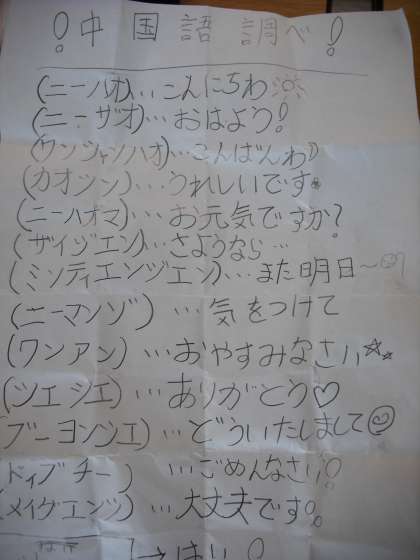 !中国語調べ!
(ニーハオ)…こんにちわ
(ニーザオ)…おはよう!
(ワンシャンハオ)…こんばんわ
(カオシン)…うれしいです。
(ニーハオマ)…お元気ですか?
(ザイジエン)…さようなら…
(ミンティエンジエン)…また明日~
(ニーマンゾ)…気をつけて
(ワンアン)…おやすみなさい☆
(シエシエ)…ありがとう♡
ブーヨンシエ)…どういたしまして
ドィブチー)…ごめんなさい!
(メイグエンジ)…大丈夫です!